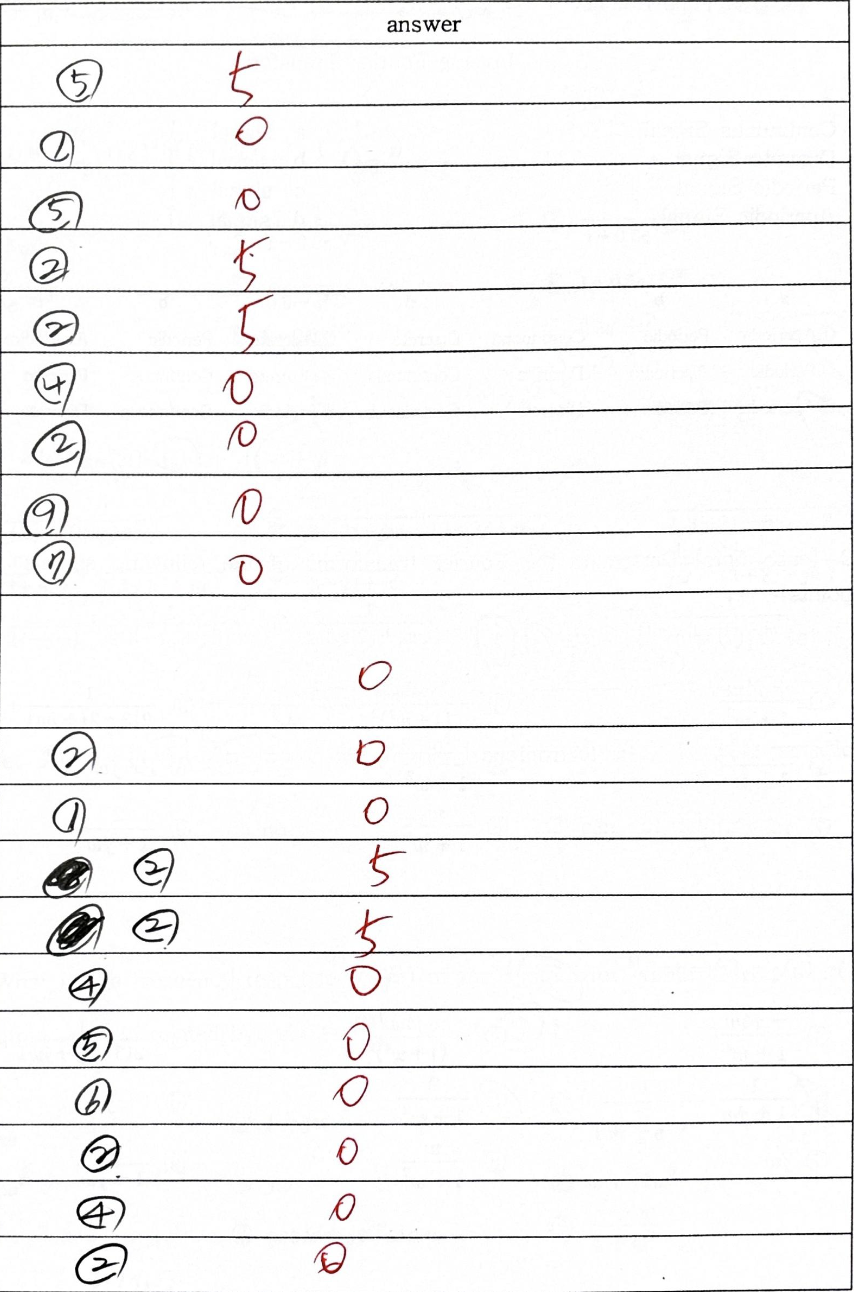 answer
⑤ 5
① 0
⑤ 0
② 5
② 5
④ 0
② 0
⑨ 0
⑦ 0
0
② 0
① 0
② 5
② 5
④ 0
⑤ 0
⑥ 0
② 0
④ 0
② 0